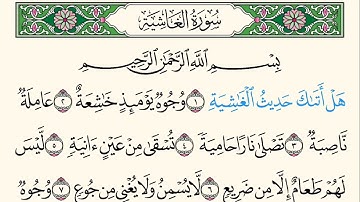 سُورَةُ الغَاشِيَةِ
بِسْمِ ٱللَّهِ ٱلرَّحْمَٰنِ ٱلرَّحِيمِ
هَلْ أَتَىٰكَ حَدِيثُ ٱلْغَٰشِيَةِ ١ وُجُوهٌ يَوْمَئِذٍ خَٰشِعَةٌ ٢ عَامِلَةٌ
نَّاصِبَةٌ ٣ تَصْلَىٰ نَارًا حَامِيَةً ٤ تُسْقَىٰ مِنْ عَيْنٍ ءَانِيَةٍ ٥ لَّيْسَ
لَهُمْ طَعَامٌ إِلَّا مِن ضَرِيعٍ ٦ لَّا يُسْمِنُ وَلَا يُغْنِي مِن جُوعٍ ٧ وُجُوهٌ